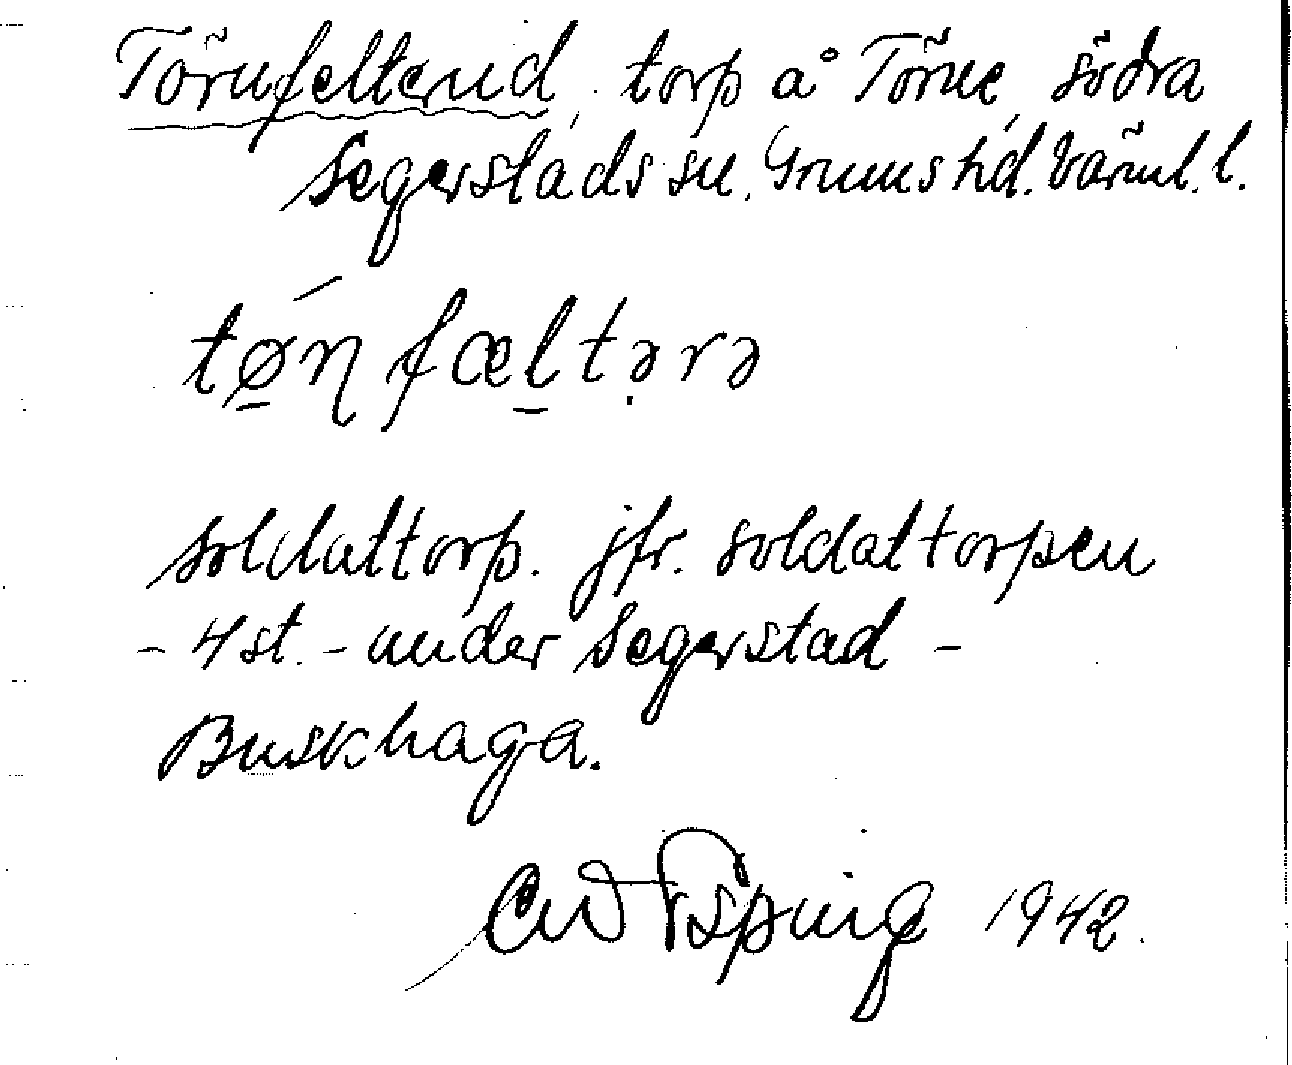 Törnfelterud, torp å Törne, södra
Segerstads sn. Grums hd. Värml. l.
tø̱ɳfæḻtərə
soldattorp. jfr. soldattorpen
- 4 st. - under Segerstad -
Buskhaga.
1942.